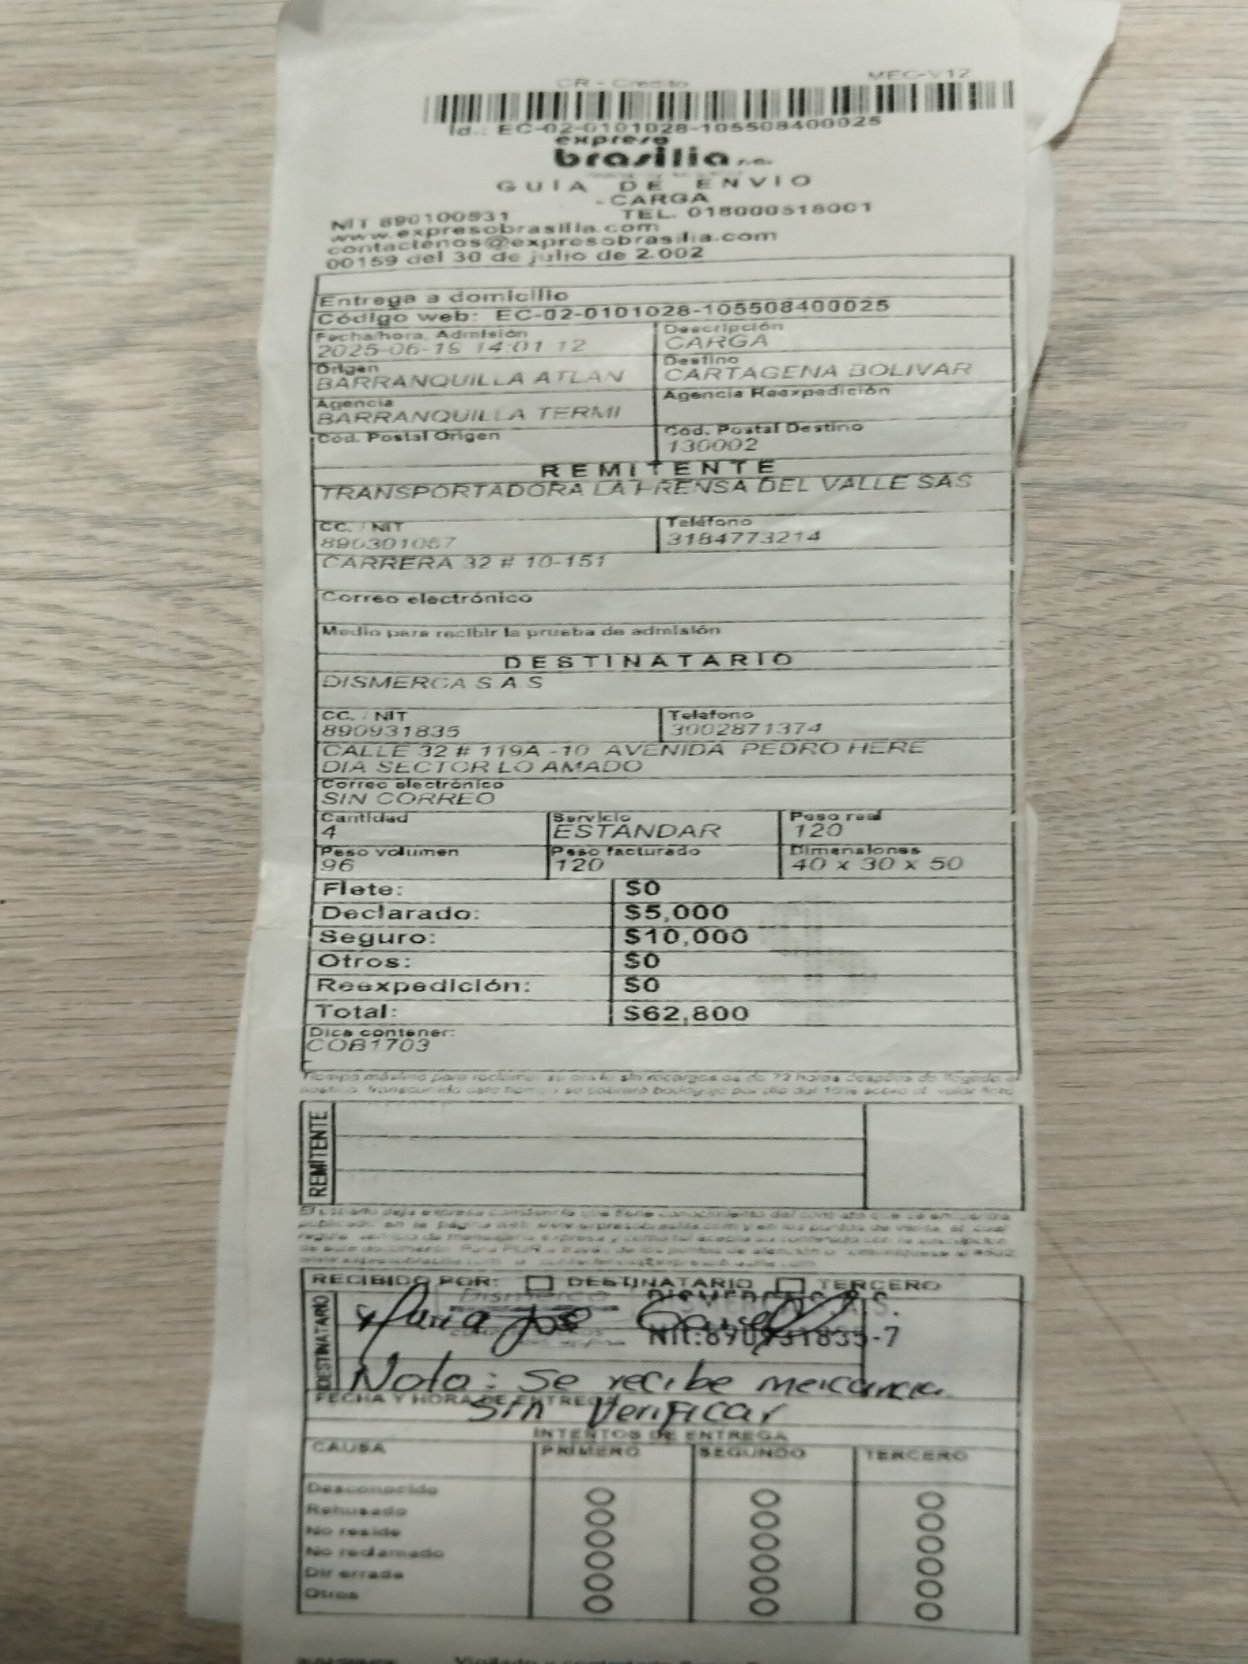 CR - Credito MEC-V12
Id.: EC-02-0101028-105508400025
expreso
brasilia s.a.
GUIA DE ENVIO
- CARGA
NIT 890100531 TEL. 018000518001
www.expresobrasilia.com
contactenos@expresobrasilia.com
00159 del 30 de julio de 2.002
Entrega a domicilio
Código web: EC-02-0101028-105508400025
Fecha/hora, Admisión Descripción
14:01:12 CARGA
Origen Destino
BARRANQUILLA ATLAN CARTAGENA BOLIVAR
Agencia Agencia Reexpedición
BARRANQUILLA TERMI
Cod. Postal Origen Cod. Postal Destino
130002
REMITENTE
TRANSPORTADORA LA PRENSA DEL VALLE SAS
CC. / NIT Teléfono
890301057 3184773214
CARRERA 32 # 10-151
Correo electrónico
Medio para recibir la prueba de admisión
DESTINATARIO
DISMERCA S.A S
CC. / NIT Telefono
890931835 3002871374
CALLE 32 # 119A -10 AVENIDA PEDRO HERE
DIA SECTOR LO AMADO
Correo electrónico
SIN CORREO
Cantidad Servicio Peso real
4 ESTANDAR 120
Peso volumen Peso facturado Dimensiones
96 120 40 x 30 x 50
Flete: $0
Declarado: $5,000
Seguro: $10,000
Otros: $0
Reexpedición: $0
Total: $62,800
Dice contener:
COB1703
Tiempo máximo para reclamar su envío sin recargos es de 72 horas después de llegada a
REMITENTE
RECIBIDO POR: DESTINATARIO TERCERO
DESTINATARIO
Maria Jose
NIT:890931835-7
Nota: Se recibe mercancia
FECHA Y HORA DE ENTREGA
Sin Verificar
INTENTOS DE ENTREGA
CAUSA PRIMERO SEGUNDO TERCERO
Desconocido
Rehusado
No reside
No reclamado
Dir errada
Otros